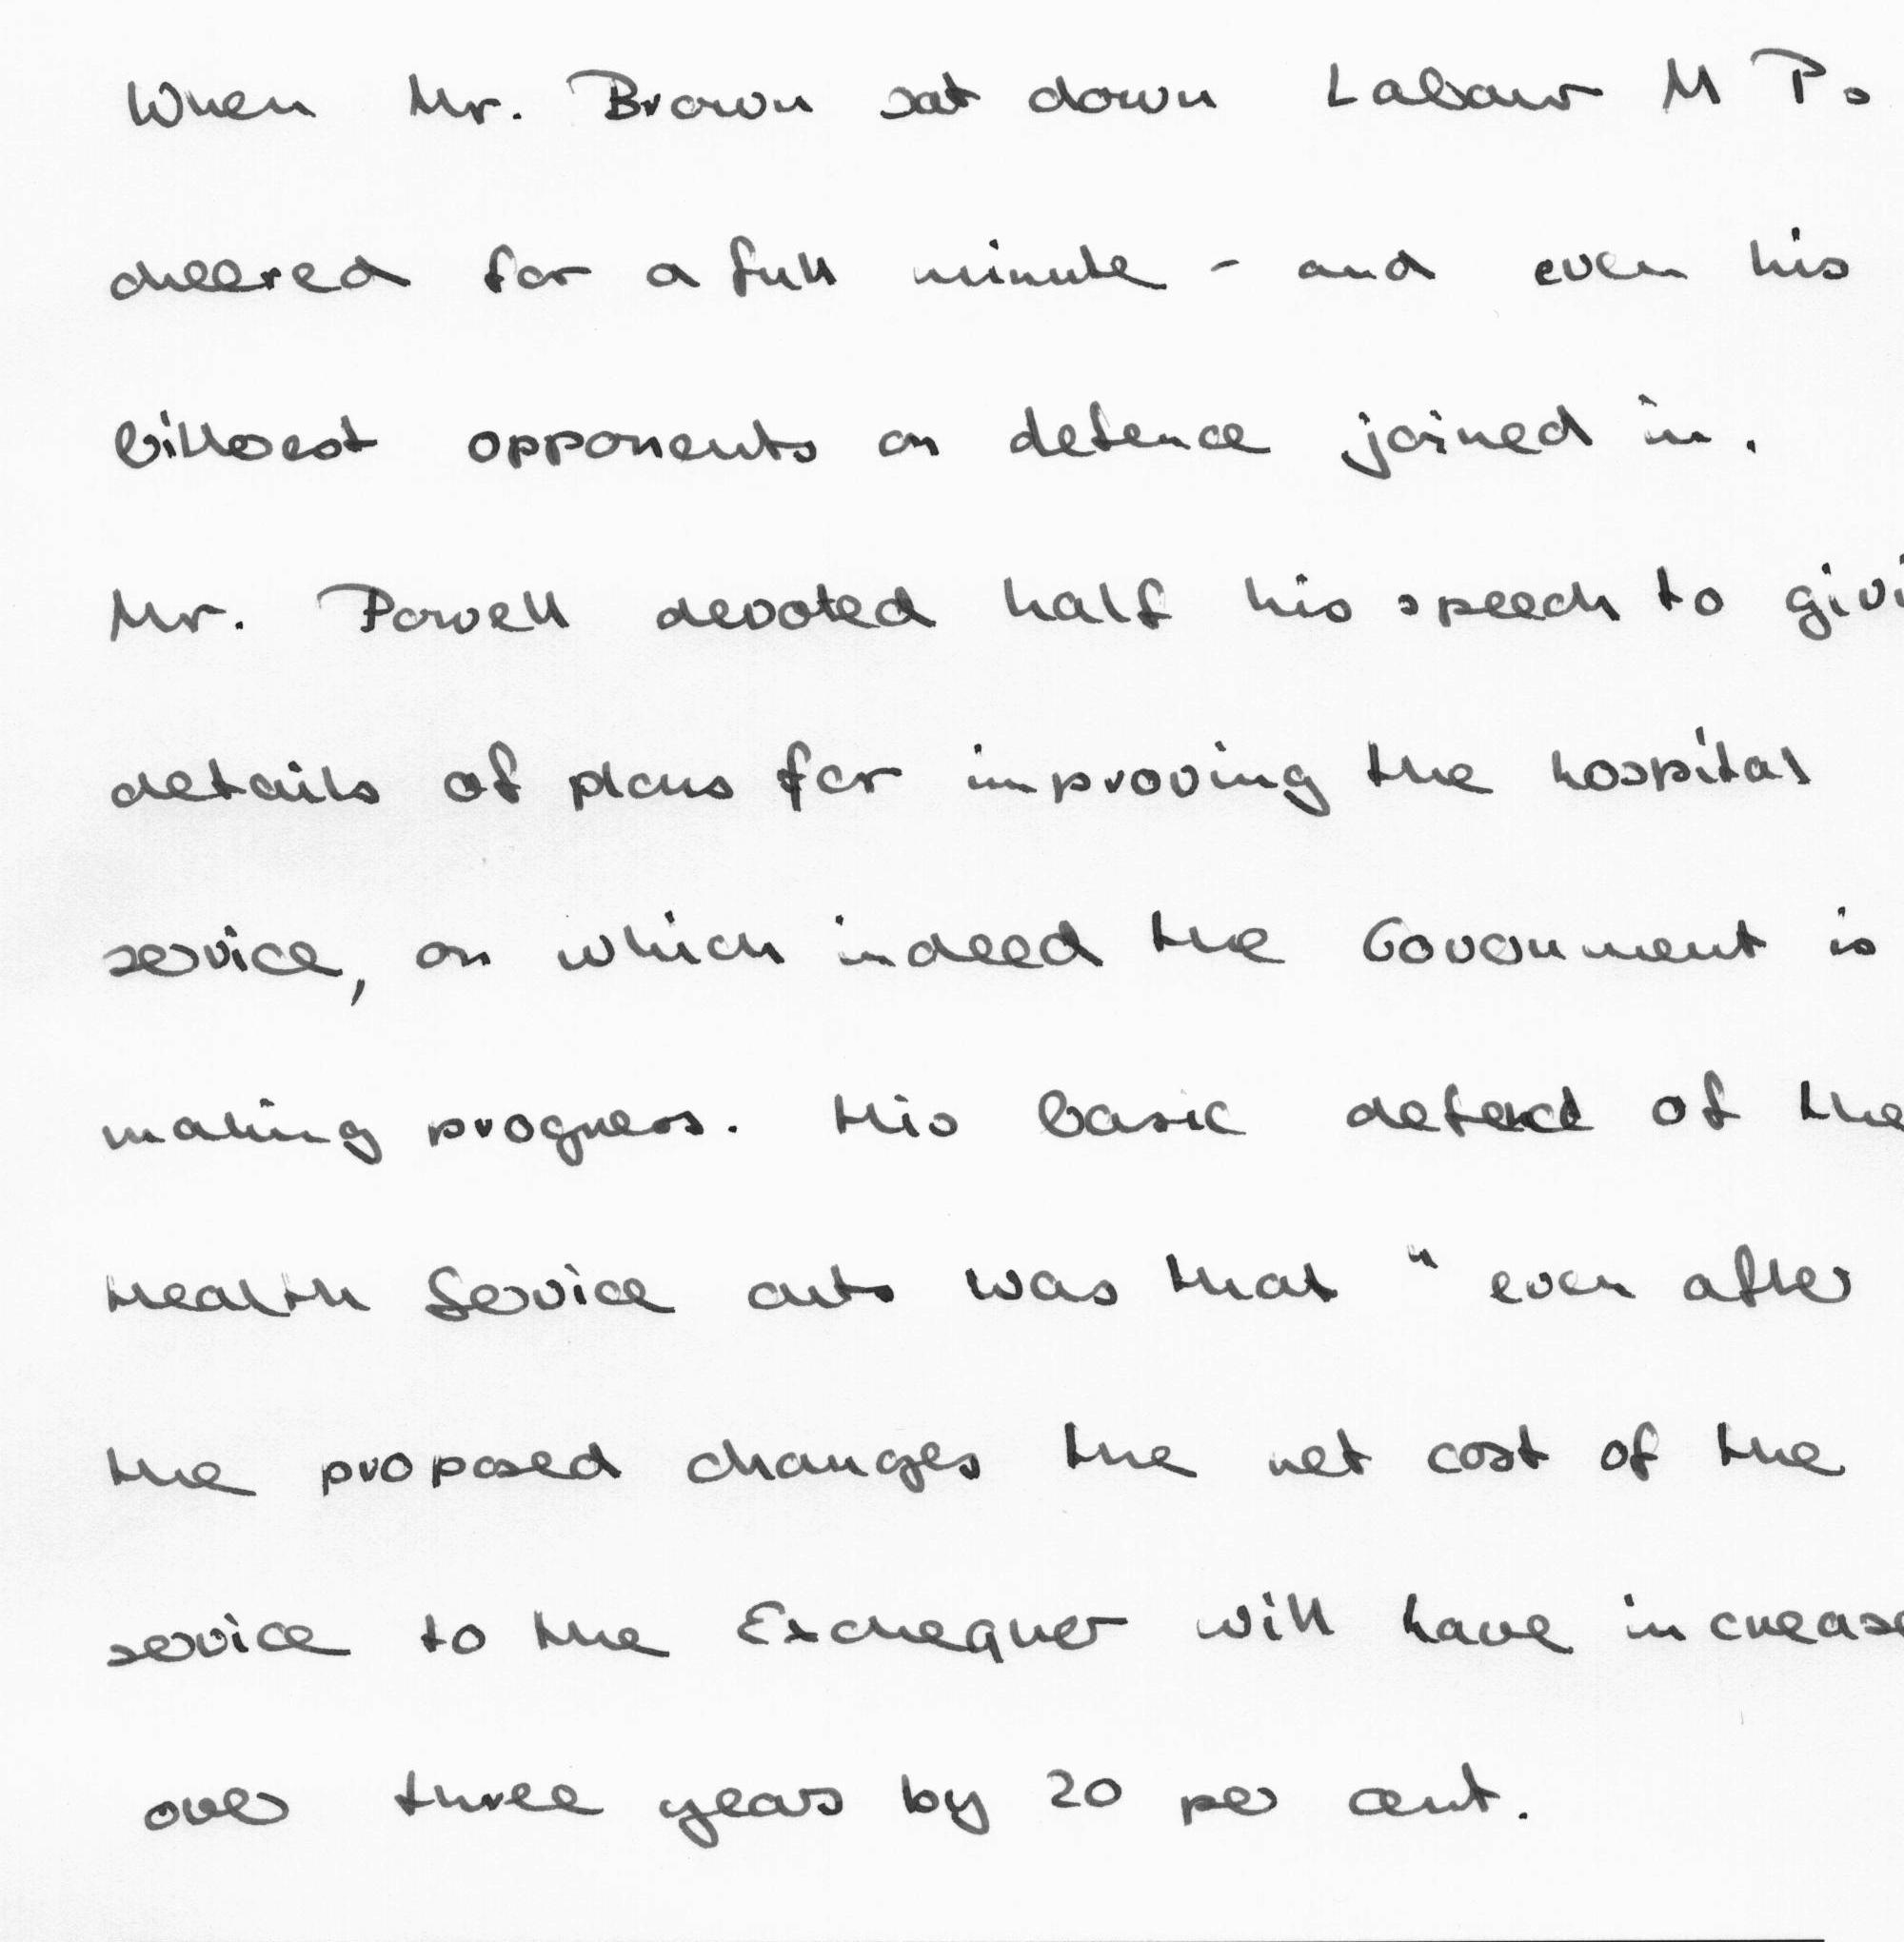 When Mr. Brown sat down Labour M Ps
cheered for a full minute - and even his
bitterest opponents on defence joined in.
Mr. Powell devoted half his speech to givi
details of plans for improving the hospital
service, on which indeed the Government is
making progress. His basic defence of the
Health Service cuts was that " even after
the proposed changes the net cost of the
service to the Exchequer will have increase
over three years by 20 per cent.